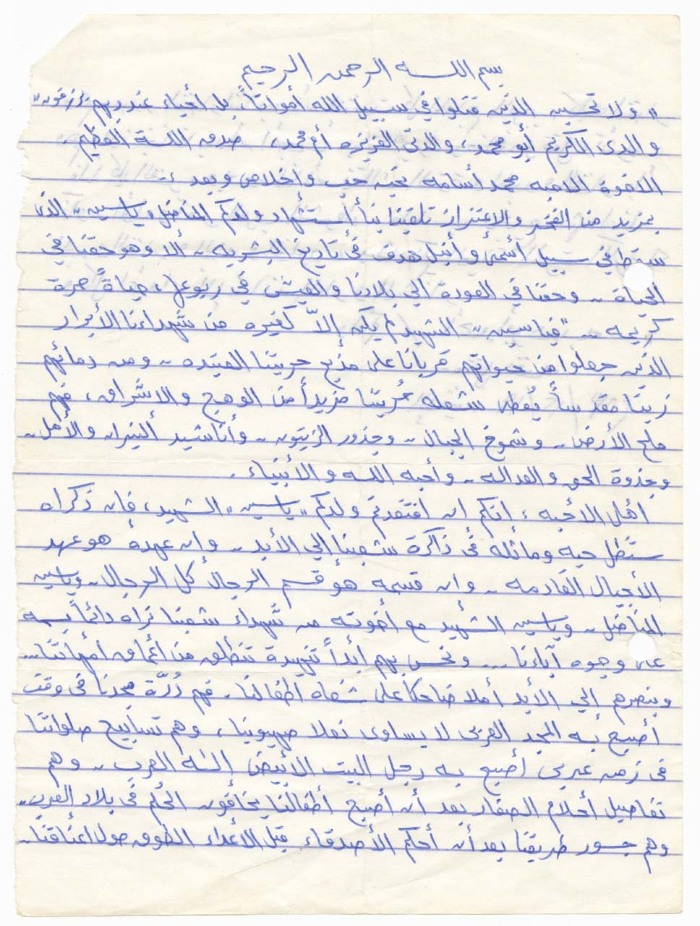 بسم اللـــه الرحمن الرحيم
" ولا تحسبن الذين قتلوا في سبيل الله أمواتاً، بل أحياء عند ربهم يرزقون "
والدي الكريم أبو محمد، والدتي العزيزة أم محمد، صدق اللـــه العظيم.
الاخوة الاحبه محمد أسامه تحية حب واخلاص وبعد ،
بمزيد من الفخر والاعتزاز تلقينا نبأ استشهاد ولدكم المناضل " ياسين " الذي
سقط في سبيل أسمى وأنبل هدف في تاريخ البشريه .. ألا وهو حقنا في
الحياة .. وحقنا في العودة الى بلادنا والعيش في ربوعها، حياةً حرة
كريمه .. " فياسين " الشهيد لم يكن إلاّ كغيره من شهداءنا الأبرار
الذين جعلوا من حيواتهم قرباناً على مذبح حريتنا المقيده .. ومن دمائهم
زيتاً مقدساً يُعطي شعلة حُريتنا مزيداً من الوهج والاشراق، فهم
ملح الأرض .. وشموخ الجبال .. وجذور الزيتون .. وأناشيد النيران والأمل ..
وجذوة الحق والعداله .. وأحبه اللـــه والأنبياء .
أهل الأحبه ، إنكم ان افتقدتم ولدكم " ياسين " الشهيد، فان ذكراه
ستظل حيه وماثله في ذاكرة شعبنا الى الأبد .. وان عهدهُ هو عهد
الأجيال القادمه .. وان قسمه هو قسم الرجال كل الرجال .. وياسين
المناضل .. وياسين الشهيد مع أخوته من شهداء شعبنا نراه دائماً بسمه
على وجوه آباءنا ... ونحس بهم أبداً تنهيدة تنطلق من أعماق أمهاتنا ...
ونبصرهم الى الأبد أملا ضاحكاً على شفاه أطفالنا . فهم دُرّة مجدنا في وقت
أصبح به المجد العربي لا يساوي نعلا صهيونيا ، وهم تسابيح صلواتنا
في زمن عربي أصبح به رجل البيت الأبيض إلـٰه العرب .. وهم
تفاصيل أحلام الصغار بعد أن أصبح أطفالنا يخافون الحلم في بلاد العرب ..
وهم جسور طريقنا بعد أن أحكم الأصدقاء قبل الأعداء الطوق حول أعناقنا ..